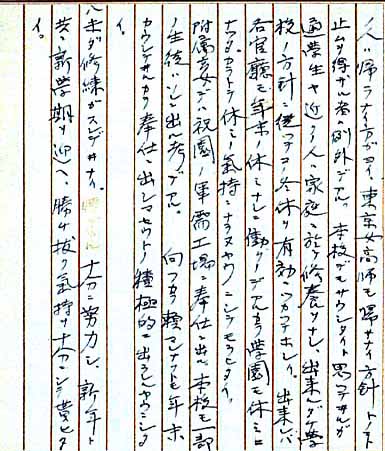 人ハ帰ラナイ方ガヨイ、東京女高師モ帰サナイ方針トノコト
止ムヲ得ザル者ハ例外デアル。本校デモサウシタイト思フテヰルガ
通学生ヤ近クノ人ハ家庭ニ於テ修養ヲナシ、出来ルダケ学
校ノ方針ニ従ッテコノ冬休ヲ有効ニツカッテホシイ。出来レバ
各官廳モ年末ノ休ミナシニ働クノデアルカラ学園モ休ミニ
ナッタカラトテ休ミノ気持ニナラヌヤウニシテモラヒタイ。
附属高女デハ祝園ノ軍需工場ニ奉仕ニ出、本校モ一部
ノ生徒ハソレニ出ル考デアル。 向フカラ頼マレナクトモ年末
カウシテヰルカラ奉仕ニ出シマセウトノ積極的ニ出ラレルヤウニシタ
イ。
ハマダ修練ガスンデヰナイ。 十分ニ努力シ、新年ト
共ニ新学期ヲ迎ヘ、勝チ抜ク気持ヲ十分ニシテ貰ヒタ
イ。